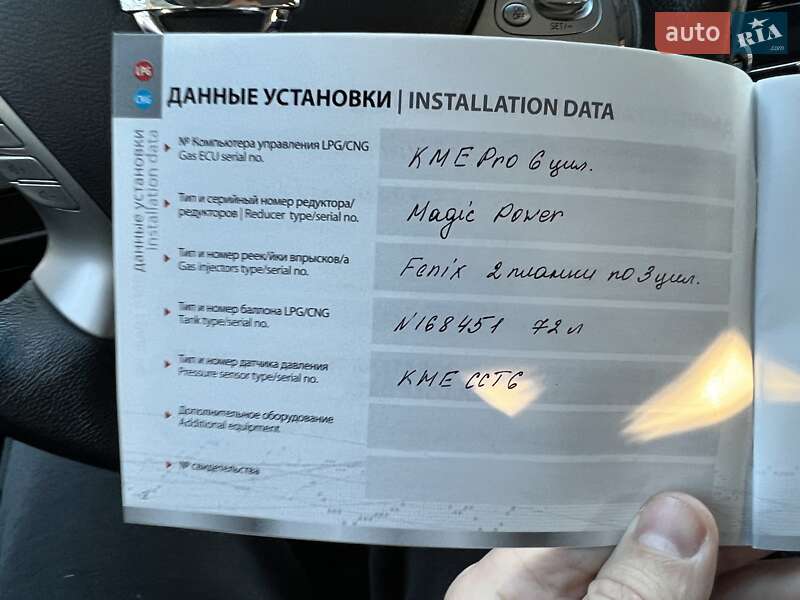 OFF
SET/-
auto RIA
.com
LPG
CNG
ДАННЫЕ УСТАНОВКИ | INSTALLATION DATA
данные установки
Installation data
№ Компьютера управления LPG/CNG
Gas ECU serial no.
KME Pro 6 цил.
Тип и серийный номер редуктора/
редукторов | Reducer type/serial no.
Magic Power
Тип и номер реек/йки впрысков/а
Gas injectors type/serial no.
Fenix 2 планки по 3 цил.
Тип и номер баллона LPG/CNG
Tank type/serial no.
N168451 72 л
Тип и номер датчика давления
Pressure sensor type/serial no.
KME CCT6
Дополнительное оборудование
Additional equipment
№ свидетельства
2